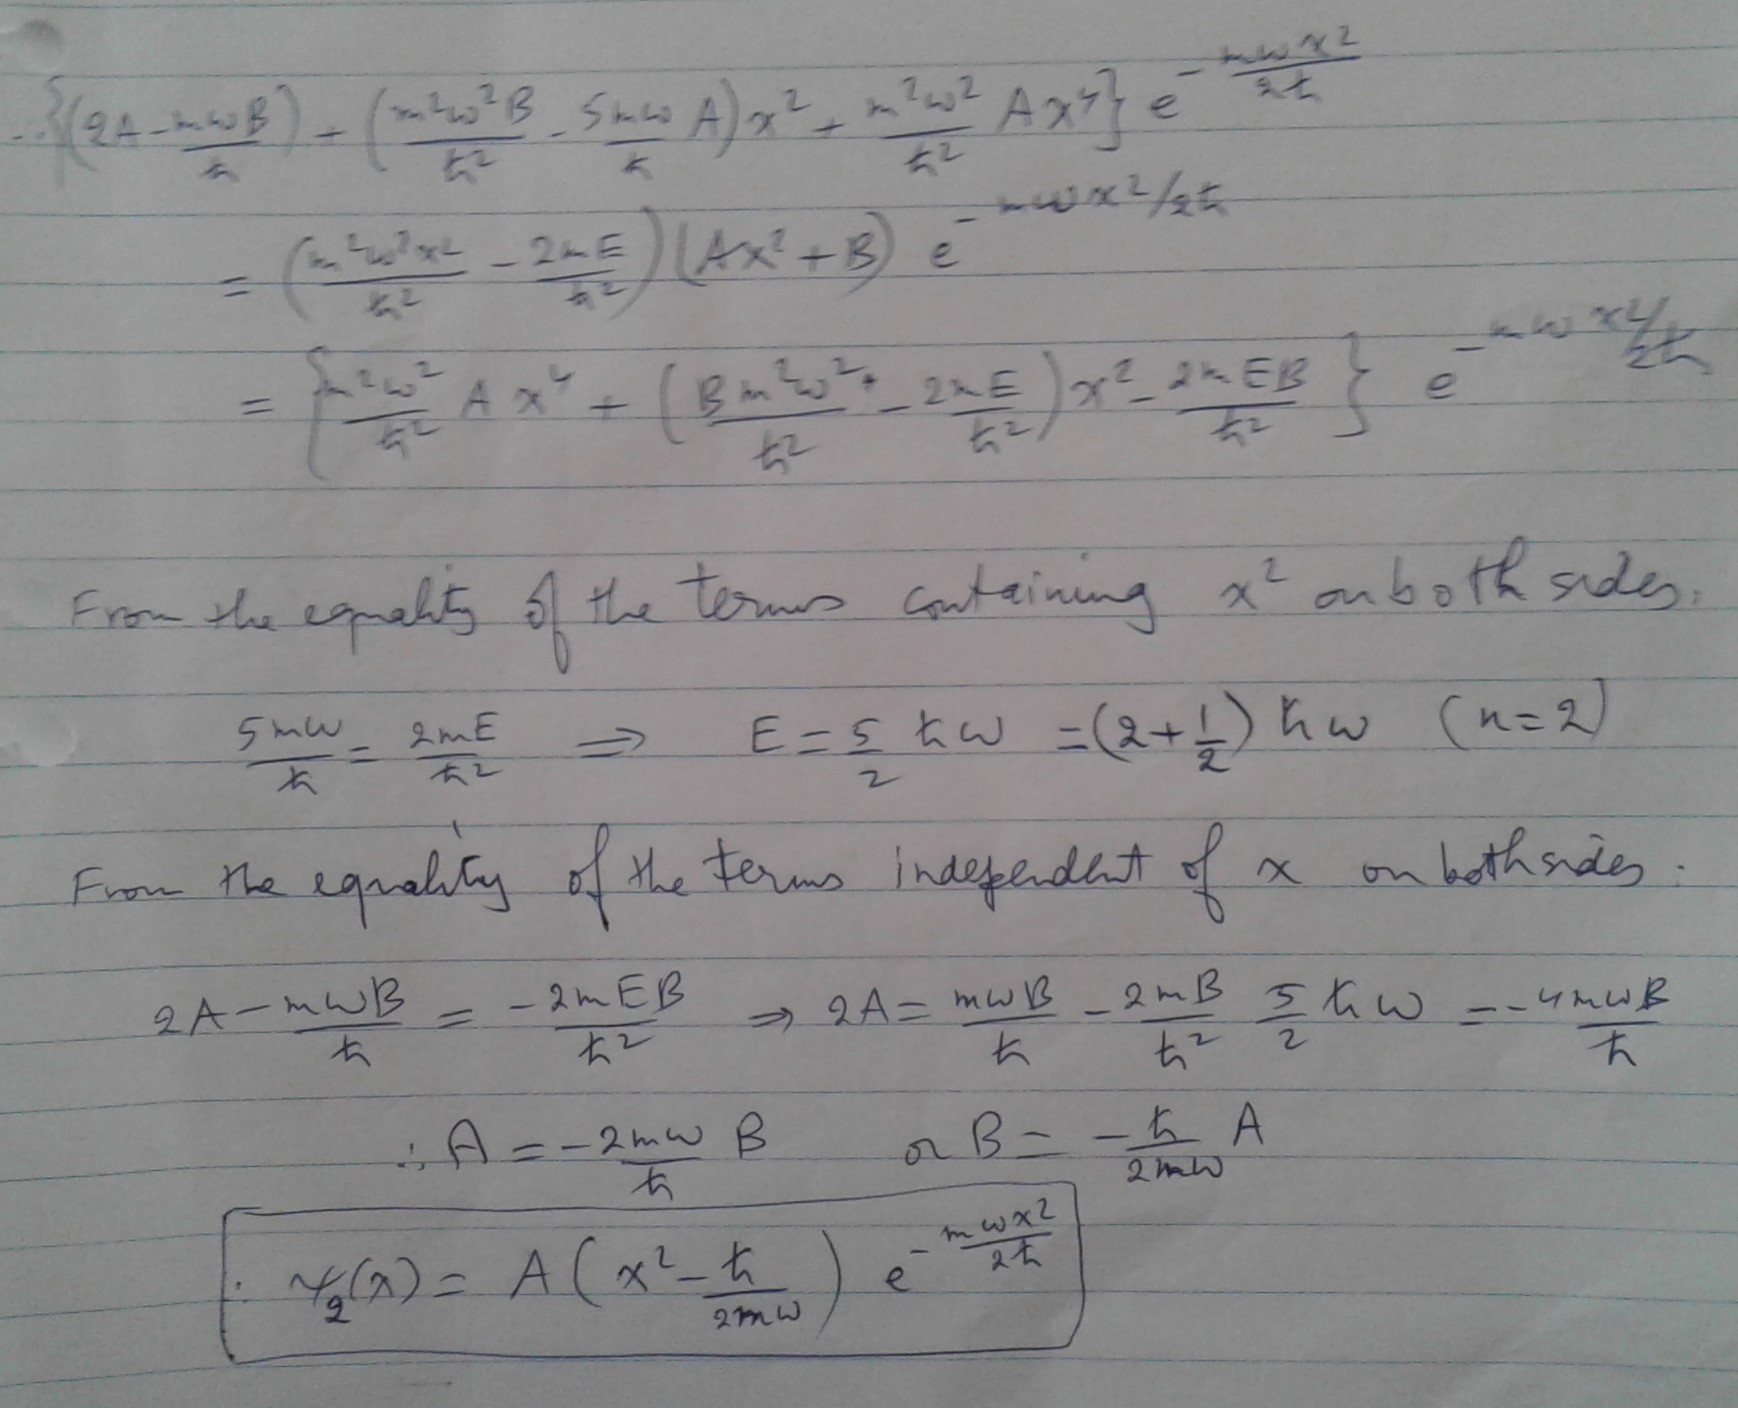 ∴ {(2A - mωB/ħ) + (m²ω²B/ħ² - 5mω/ħ A)x² + m²ω²/ħ² Ax⁴} e^(-mωx²/2ħ)
= (m²ω²x²/ħ² - 2mE/ħ²)(Ax² + B) e^(-mωx²/2ħ)
= {m²ω²/ħ² A x⁴ + (Bm²ω²/ħ² - 2mE/ħ²)x² - 2mEB/ħ²} e^(-mωx²/2ħ)
From the equality of the terms containing x² on both sides:
5mω/ħ = 2mE/ħ² ⇒ E = 5/2 ħω = (2+1/2) ħω (n=2)
From the equality of the terms independent of x on both sides:
2A - mωB/ħ = -2mEB/ħ² ⇒ 2A = mωB/ħ - 2mB/ħ² 5/2 ħω = -4mωB/ħ
∴ A = -2mω/ħ B or B = -ħ/2mω A
∴ ψ₂(x) = A(x² - ħ/2mω) e^(-mωx²/2ħ)